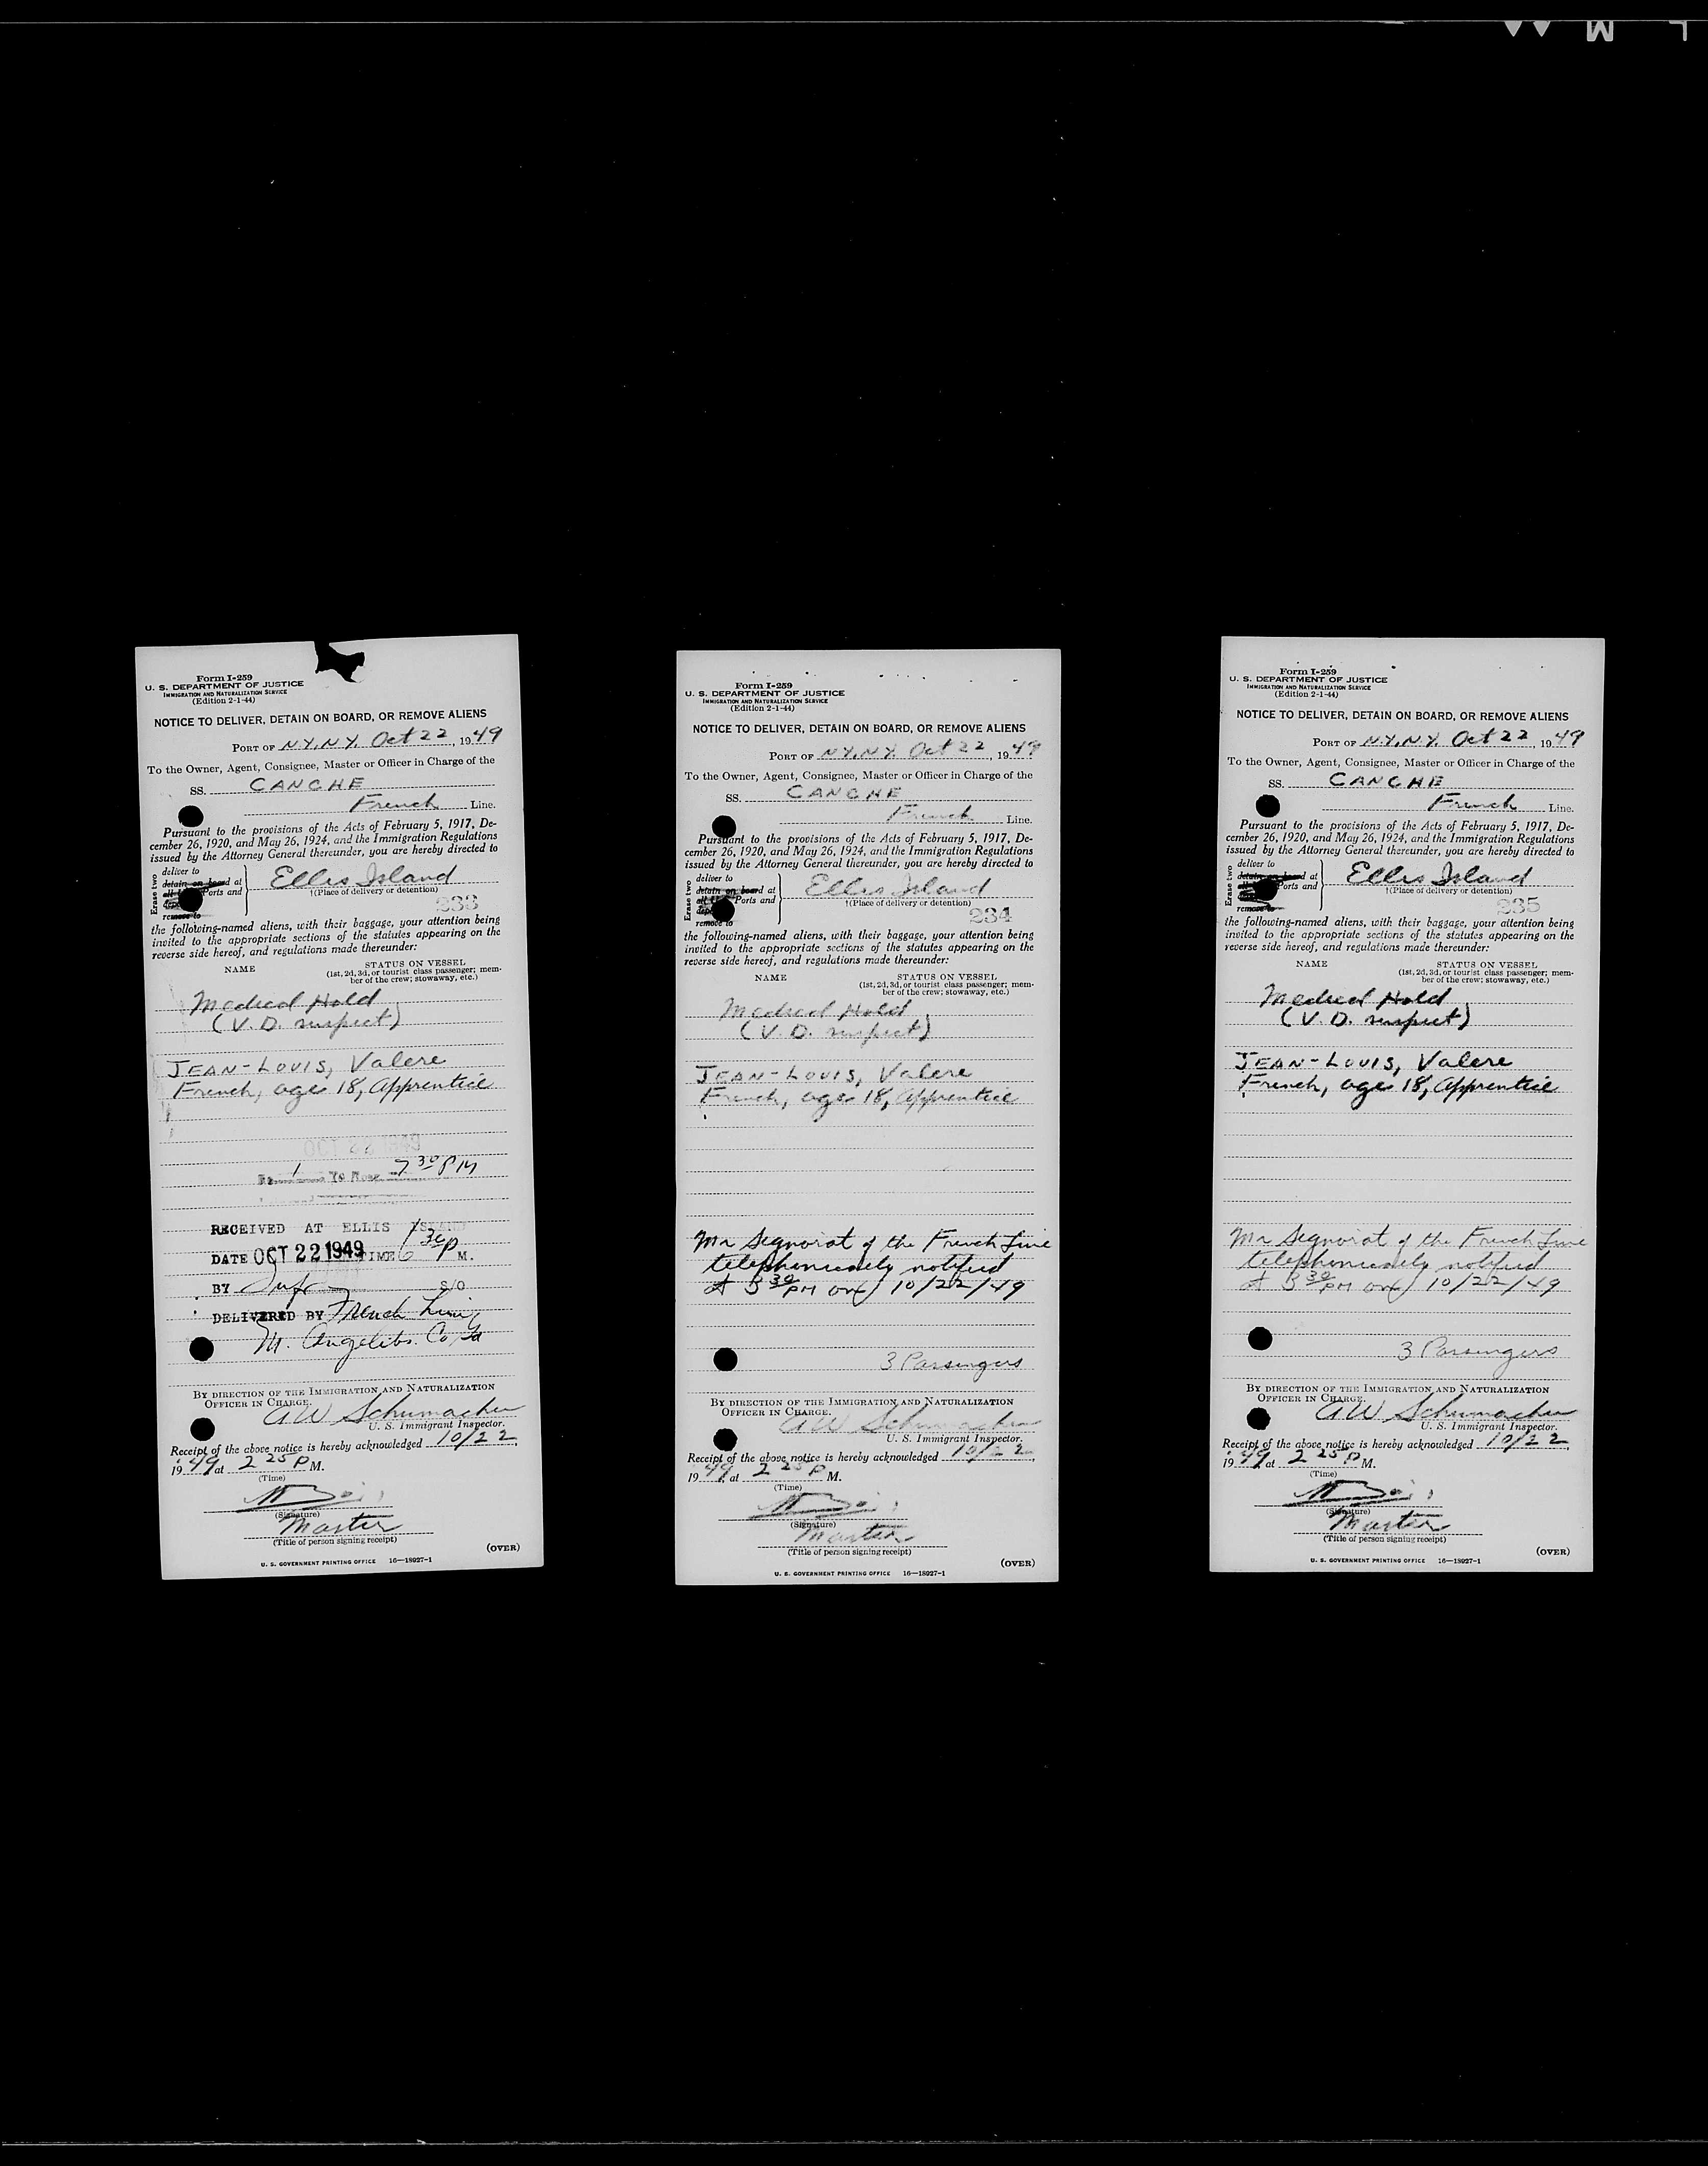 L M
Form I-259
U. S. DEPARTMENT OF JUSTICE
IMMIGRATION AND NATURALIZATION SERVICE
(Edition 2-1-44)
NOTICE TO DELIVER, DETAIN ON BOARD, OR REMOVE ALIENS
PORT OF N.Y., N.Y. Oct 22, 1949
To the Owner, Agent, Consignee, Master or Officer in Charge of the
SS. CANCHE
French Line.
Pursuant to the provisions of the Acts of February 5, 1917, De-
cember 26, 1920, and May 26, 1924, and the Immigration Regulations
issued by the Attorney General thereunder, you are hereby directed to
Erase two
deliver to
detain on board at
Ports and
remove to
Ellis Island
†(Place of delivery or detention)
233
the following-named aliens, with their baggage, your attention being
invited to the appropriate sections of the statutes appearing on the
reverse side hereof, and regulations made thereunder:
NAME STATUS ON VESSEL
(1st, 2d, 3d, or tourist class passenger; mem-
ber of the crew; stowaway, etc.)
Medical Hold
(V. D. suspect)
JEAN-LOUIS, Valere
French, age 18, Apprentice
OCT 22 1949
1 7 30 PM
RECEIVED AT ELLIS ISLAND
DATE OCT 22 1949 TIME 6 30 P M.
BY S/O
DELIVERED BY French Line
M.
BY DIRECTION OF THE IMMIGRATION AND NATURALIZATION
OFFICER IN CHARGE.
AW Schumacher
U. S. Immigrant Inspector.
Receipt of the above notice is hereby acknowledged 10/22,
1949 at 2 25 P M.
(Time)
(Signature)
Master
(Title of person signing receipt)
(OVER)
U. S. GOVERNMENT PRINTING OFFICE 16—18927-1
Form I-259
U. S. DEPARTMENT OF JUSTICE
IMMIGRATION AND NATURALIZATION SERVICE
(Edition 2-1-44)
NOTICE TO DELIVER, DETAIN ON BOARD, OR REMOVE ALIENS
PORT OF N.Y., N.Y. Oct 22, 1949
To the Owner, Agent, Consignee, Master or Officer in Charge of the
SS. CANCHE
French Line.
Pursuant to the provisions of the Acts of February 5, 1917, De-
cember 26, 1920, and May 26, 1924, and the Immigration Regulations
issued by the Attorney General thereunder, you are hereby directed to
Erase two
deliver to
detain on board at
Ports and
remove to
Ellis Island
†(Place of delivery or detention)
234
the following-named aliens, with their baggage, your attention being
invited to the appropriate sections of the statutes appearing on the
reverse side hereof, and regulations made thereunder:
NAME STATUS ON VESSEL
(1st, 2d, 3d, or tourist class passenger; mem-
ber of the crew; stowaway, etc.)
Medical Hold
(V. D. suspect)
JEAN-LOUIS, Valere
French, age 18, Apprentice
Mr Segnorat of the French Line
telephonically notified
at 3 30 PM on 10/22/49
3 Passengers
BY DIRECTION OF THE IMMIGRATION AND NATURALIZATION
OFFICER IN CHARGE.
AW Schumacher
U. S. Immigrant Inspector.
Receipt of the above notice is hereby acknowledged 10/22,
1949, at 2 25 P M.
(Time)
(Signature)
Master
(Title of person signing receipt)
(OVER)
U. S. GOVERNMENT PRINTING OFFICE 16—18927-1
Form I-259
U. S. DEPARTMENT OF JUSTICE
IMMIGRATION AND NATURALIZATION SERVICE
(Edition 2-1-44)
NOTICE TO DELIVER, DETAIN ON BOARD, OR REMOVE ALIENS
PORT OF N.Y., N.Y. Oct 22, 1949
To the Owner, Agent, Consignee, Master or Officer in Charge of the
SS. CANCHE
French Line.
Pursuant to the provisions of the Acts of February 5, 1917, De-
cember 26, 1920, and May 26, 1924, and the Immigration Regulations
issued by the Attorney General thereunder, you are hereby directed to
Erase two
deliver to
detain on board at
Ports and
remove to
Ellis Island
†(Place of delivery or detention)
235
the following-named aliens, with their baggage, your attention being
invited to the appropriate sections of the statutes appearing on the
reverse side hereof, and regulations made thereunder:
NAME STATUS ON VESSEL
(1st, 2d, 3d, or tourist class passenger; mem-
ber of the crew; stowaway, etc.)
Medical Hold
(V. D. suspect)
JEAN-LOUIS, Valere
French, age 18, Apprentice
Mr Segnorat of the French Line
telephonically notified
at 3 30 PM on 10/22/49
3 Passengers
BY DIRECTION OF THE IMMIGRATION AND NATURALIZATION
OFFICER IN CHARGE.
AW Schumacher
U. S. Immigrant Inspector.
Receipt of the above notice is hereby acknowledged 10/22,
1949, at 2 25 P. M.
(Time)
(Signature)
Master
(Title of person signing receipt)
(OVER)
U. S. GOVERNMENT PRINTING OFFICE 16—18927-1